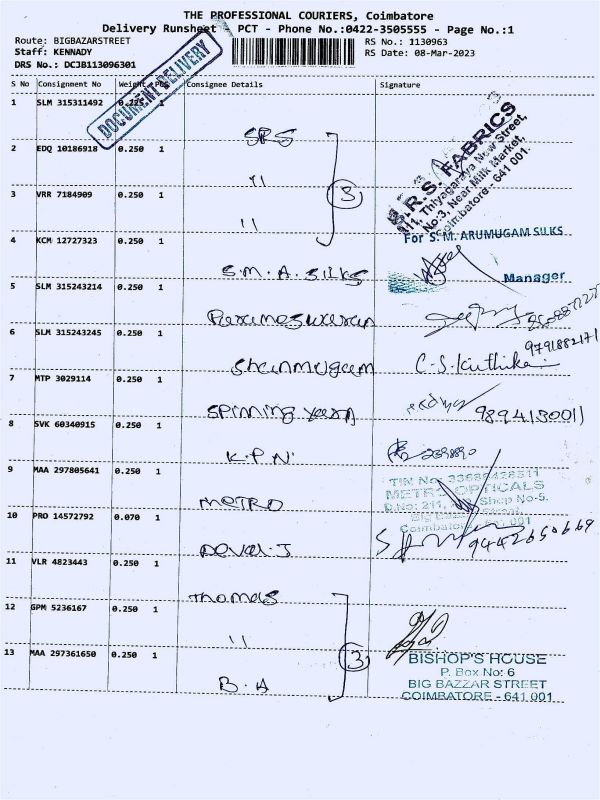 THE PROFESSIONAL COURIERS, Coimbatore
Delivery Runsheet PCT - Phone No.:0422-3505555 - Page No.:1
Route: BIGBAZARSTREET
RS No.: 1130963
Staff: KENNADY
RS Date: 08-Mar-2023
DRS No.: DCJB113096301
DOCUMENT DELIVERY
S No Consignment No Weight PCS Consignee Details Signature
1 SLM 315311492 0.225 1 SRS
2 EDQ 10186918 0.250 1 "
3 VRR 7184909 0.250 1 "
3
S.R.S. FABRICS
111, Thiyagaraya New Street,
No:3, Near Milk Market,
Coimbatore - 641 001.
4 KCM 12727323 0.250 1 S.M.A. SILKS
For S. M. ARUMUGAM SILKS
Manager
5 SLM 315243214 0.250 1 Parameswaran
6 SLM 315243245 0.250 1 Shanmugam
C.S. 9791882171
7 MTP 3029114 0.250 1 SPinning yarn
9894130011
8 SVK 60340915 0.250 1 K.P.N
9 MAA 297805641 0.250 1 METRO
TIN No.
METRO OPTICALS
D.No: 211, Shop No-5.
Big Bazaar Street,
Coimbatore 641 001
10 PRO 14572792 0.070 1 Deval.J
9442650669
11 VLR 4823443 0.250 1 Thomas
12 GPM 5236167 0.250 1 "
13 MAA 297361650 0.250 1 B.A
3
BISHOP'S HOUSE
P. Box No: 6
BIG BAZZAR STREET
COIMBATORE - 641 001